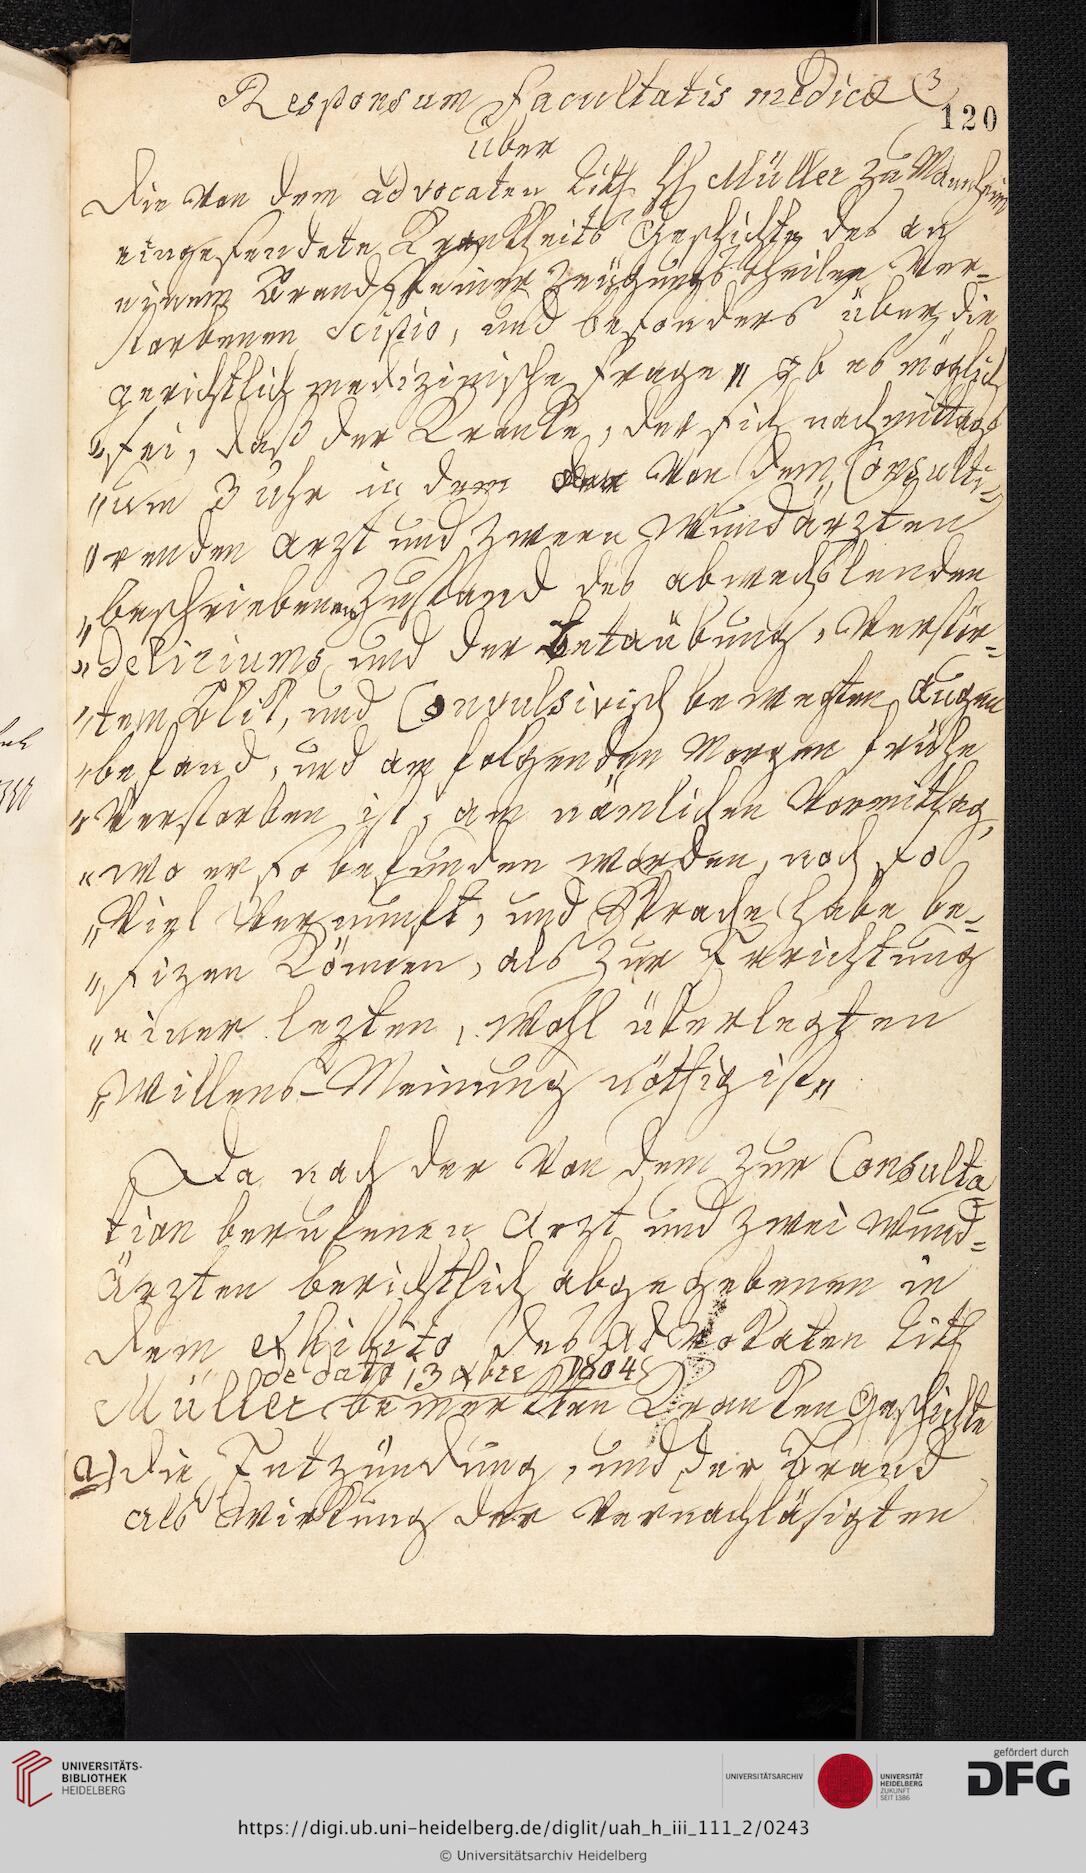 Responsum Facultatis medicæ 3
120
über
die von dem advocaten Litt. H. Müller zu Mannheim
eingesendete Krankheits Geschichte des an
einem Brand seiner Zeügungs theilen Ver-
storbenen Scipio, und besonders über die
gerichtlich medizinische Frage „ ob es möglich
„sei, daß der Kranke, der sich nachmittags
„um 3 Uhr in dem von dem Consulti-
„renden arzt und zween Wundärzten
„beschriebenen Zustand des abwechslenden
„deliriums und der Betäubung, Verstör-
„tem Blik, und Convulsivisch bewegten Augen
„befand, und am folgenden Morgen frühe
„Verstorben ist, am nämlichen Vormittag,
„wo er so befunden worden, noch so
„Viel Vernunft, und Sprache habe be-
„sizen können, als zur Errichtung
„einer lezten, wohl überlegten
„Willens-Meinung nöthig ist„
Da nach der Von dem zur Consulta
tion berufenen Arzt und zwei Wund-
Ärzten berichtlich abgegebenen in
dem exhibito des Advokaten Litt
de dato 13 xbre 1804
Müller bemerkten Kranken Geschichte
a) die Entzündung, und der Brand
als Wirkung der Vernachläsigten
UNIVERSITÄTS-
BIBLIOTHEK
HEIDELBERG
UNIVERSITÄTSARCHIV
UNIVERSITÄT
HEIDELBERG
ZUKUNFT
SEIT 1386
gefördert durch
DFG
https://digi.ub.uni-heidelberg.de/diglit/uah_h_iii_111_2/0243
© Universitätsarchiv Heidelberg